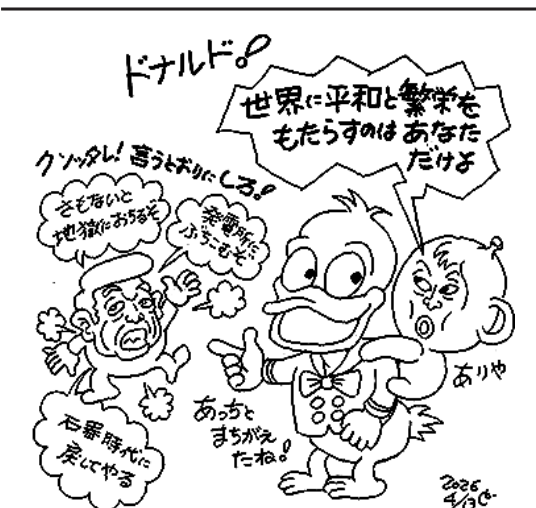 ドナルド!
世界に平和と繁栄を
もたらすのはあなた
だけよ
クソッタレ!言うとおりにしろ!
さもないと
地獄におちるぞ
発電所に
ぶちこむぞ
石器時代に
戻してやる
あっちと
まちがえ
たね!
ありゃ
2026
4/13